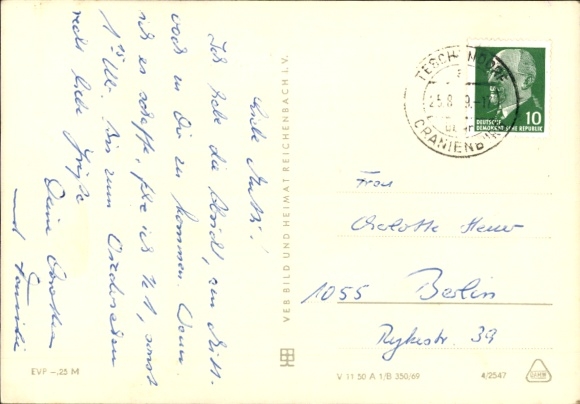 Liebe Mutti!
Ich habe die Absicht, am Mitt-
woch zu Dir zu kommen. Wenn
ich es schaffe, fahre ich 12¹, sonst
Bis zum Wiedersehen
recht liebe Grüße
Deine Dorothea
und Familie
VEB BILD UND HEIMAT REICHENBACH I. V.
EVP –,25 M
TESCHENDORF
25.8
ORANIENB
10
DEUTSCHE
DEMOKRATISCHE REPUBLIK
Frau
Charlotte
1055 Berlin
Rykestr. 39
V 11 50 A 1/B 350/69
4/2547